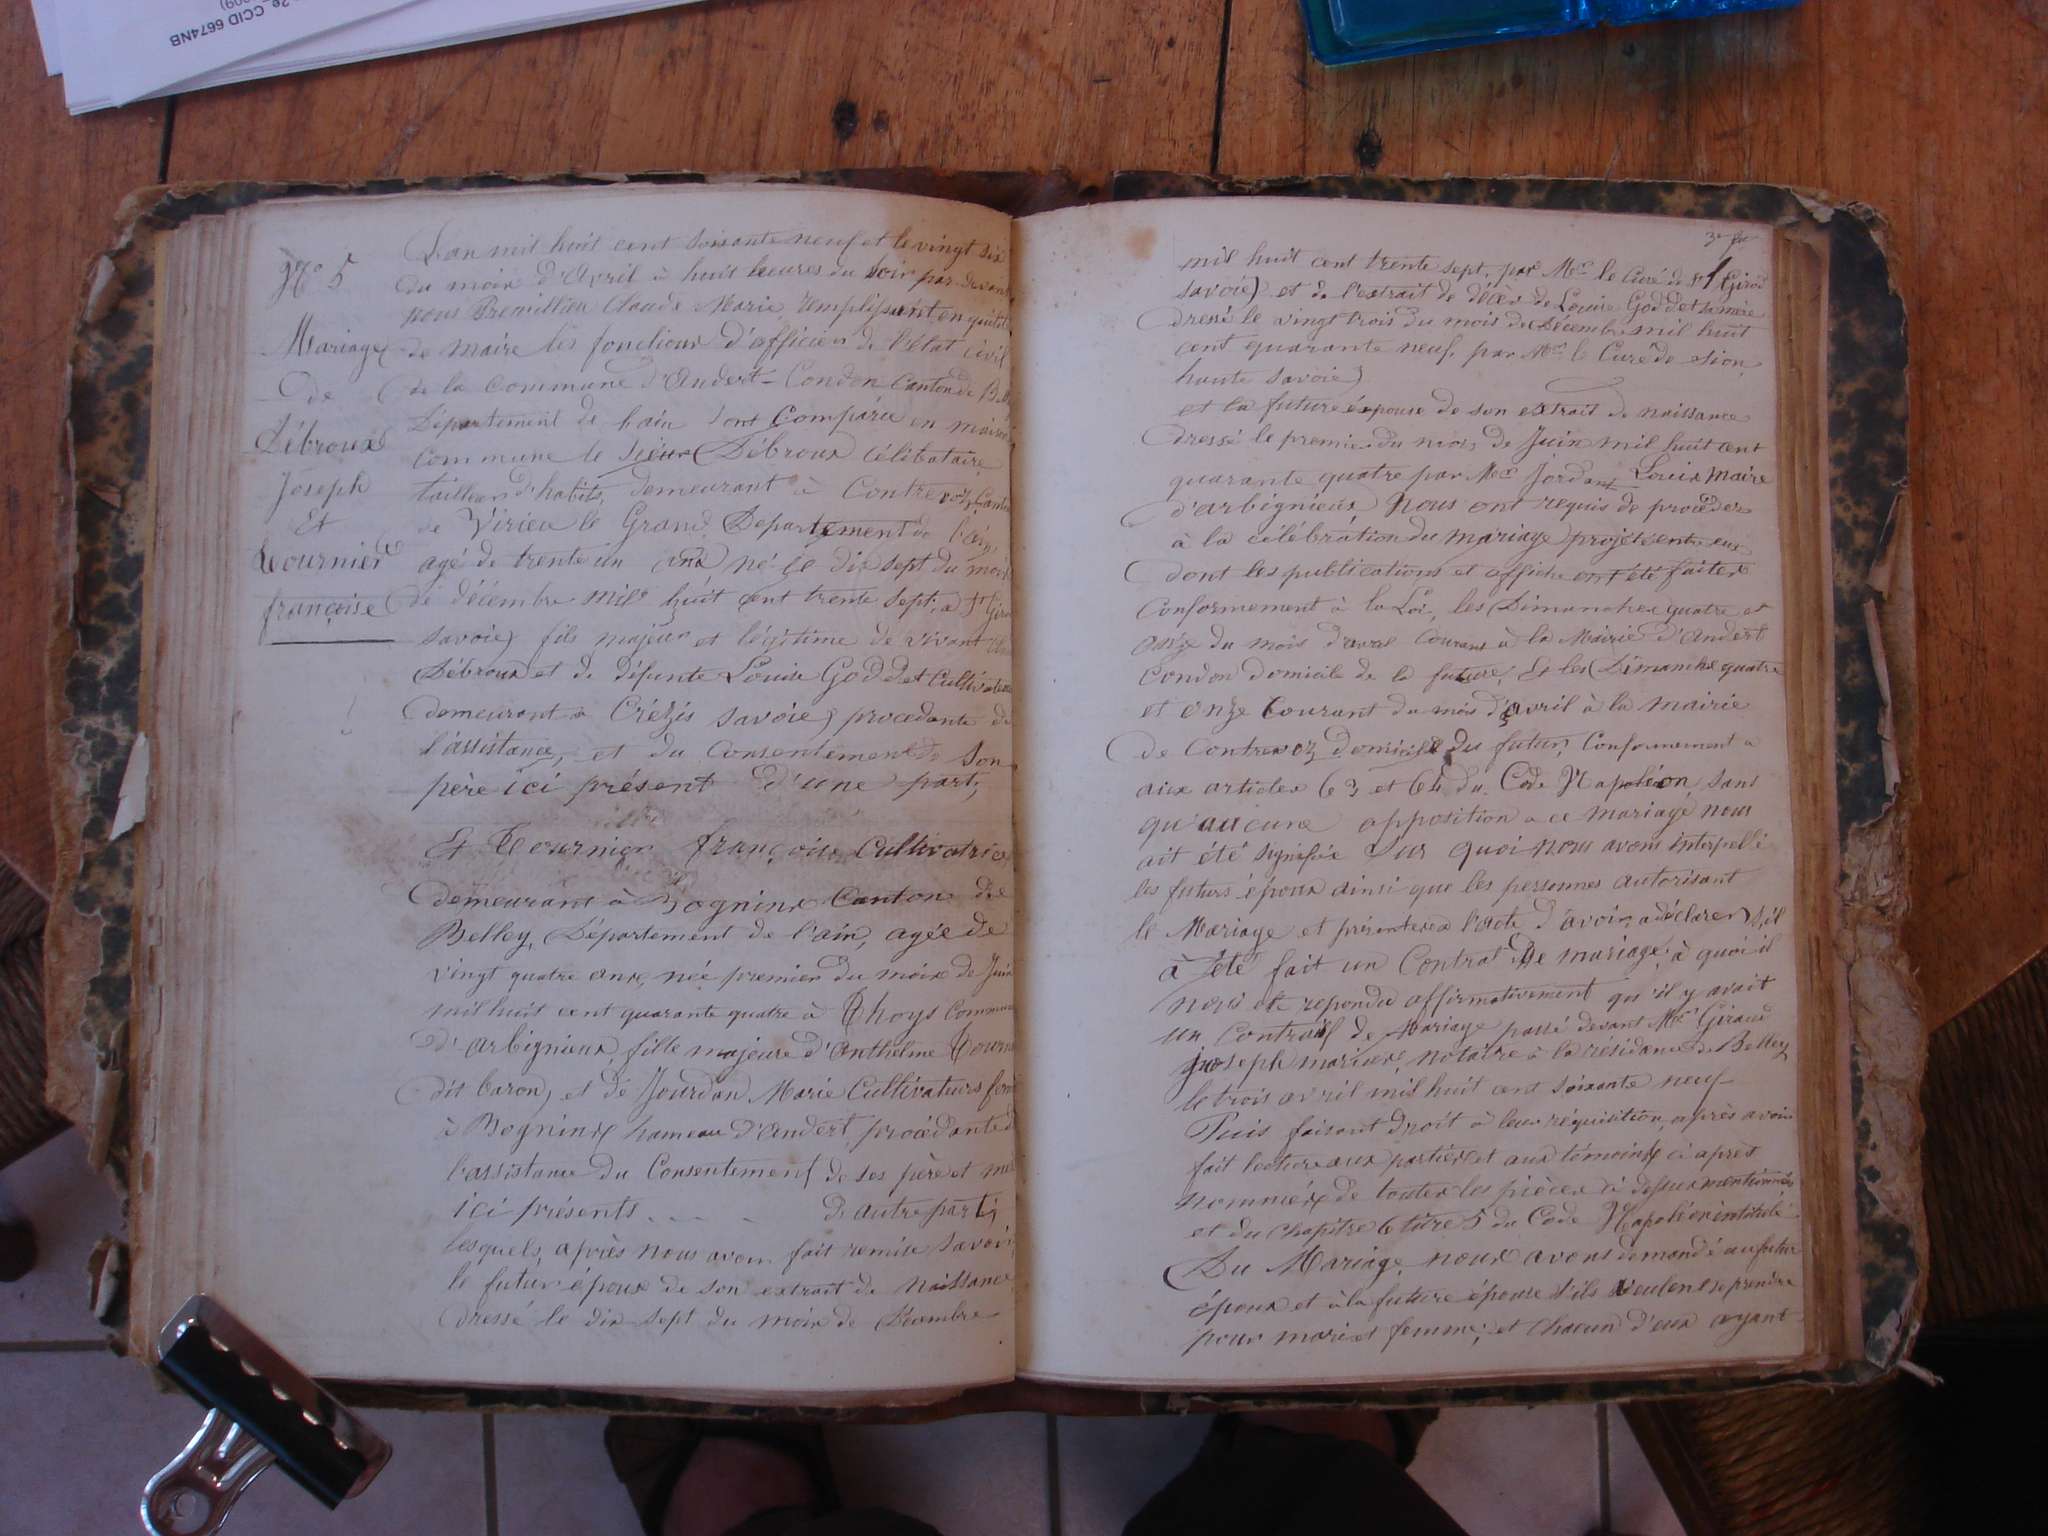 2e CCID 6674NB
No 5
Mariage
de
Débroux
Joseph
Et
Tournier
françoise
L'an mil huit cent soixante neuf et le vingt six
du moix d'Avril à huit heures du soir par devant
nous Claude Marie, remplissant en qualité
de maire les fonctions d'officier de l'état civil
de la commune d'Andert-Condon Canton de
Département de l'ain sont Comparu en
commune le sieur Débroux célibataire
tailleur d'habits, demeurant à Contrevoz, Canton
de Virieu le Grand, Département de l'ain,
agé de trente un ans né le dix sept du mois
de décembre mil huit cent trente sept, à St
savoie) fils majeur et légitime de vivant
Débroux et de défunte Louise Goddet
demeurant à savoie) procedante de
l'assistance, et du Consentement de son
père ici présent d'une part;
Et Tournier françoise Cultivatrice
demeurant à Bogninx Canton de
Belley, Département de l'ain, agée de
vingt quatre anx, née premier du moix de Juin
mil huit cent quarante quatre à Thoys Commune
d'arbignieux, fille majeure d'Anthelme
dit baron, et de Jourdan Marie Cultivateurs
à Bogninx hameau d'Andert, procédante
l'assistance du Consentement de ses père et
ici présents d'autre part;
lesquels, après nous avoir fait remise savoir
le futur époux de son extrait de Naissance
dressé le dix sept du moix de Décembre
mil huit cent trente sept, par Mr le Curé de St Girod
savoie) et de l'extrait de décès de Louise Goddet sa mère
dressé le vingt trois du mois de Décembre mil huit
cent quarante neuf, par Mr le Curé de Sion
haute savoie)
et la future épouse de son extrait de naissance
dressé le premier du mois de Juin mil huit cent
quarante quatre par Mr Jordan Louis Maire
d'arbignieux Nous ont requis de procéder
à la célébration du mariage projeté entre eux
dont les publications et affiche ont été faites
Conformement à la Loi, les Dimanches quatre et
onze du mois d'avril Courant à la Mairie d'Andert
Condon domicile de la future; Et les Dimanche quatre
et onze Courant du mois d'avril à la mairie
de Contrevoz domicile du futur, Conformement a
aux articles 63 et 64 du Code Napoléon, sans
qu'aucune opposition a ce mariage nous
ait été signifiée Sur quoi nous avons interpellé
les futurs époux ainsi que les personnes autorisant
le Mariage et présentes a l'acte d'avoir a déclarer, s'il
à été fait un Contrat De mariage; à quoi il
nous ont repondu affirmativement qu'il y avait
un Contrat de Mariage passé devant Me Giraud
joseph marier, notaire à la résidance de Belley
le trois avril mil huit cent soixante neuf
Puis faisant Droit à leur réquisition, après avoir
fait lecture aux parties et aux témoins ci après
nommés de toutes les pièces ci dessus mentionnées
et du chapitre 6 titre 5 du Code Napoléon intitulé
Du Mariage, nous avons demandé au futur
époux et à la future épouse s'ils veulent se prendre
pour mari et femme; et chacun d'eux ayant